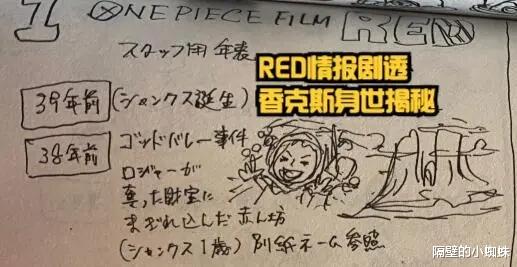 1 ONE PIECE FILM RED
スタッフ用 年表
RED情报剧透
香克斯身世揭秘
39年前 (シャンクス誕生)
38年前 ゴッドバレー事件
ロジャーが
奪った財宝に
まぎれ込んだ赤ん坊
(シャンクス1歳) 別紙ネーム参照
隔壁的小蜘蛛